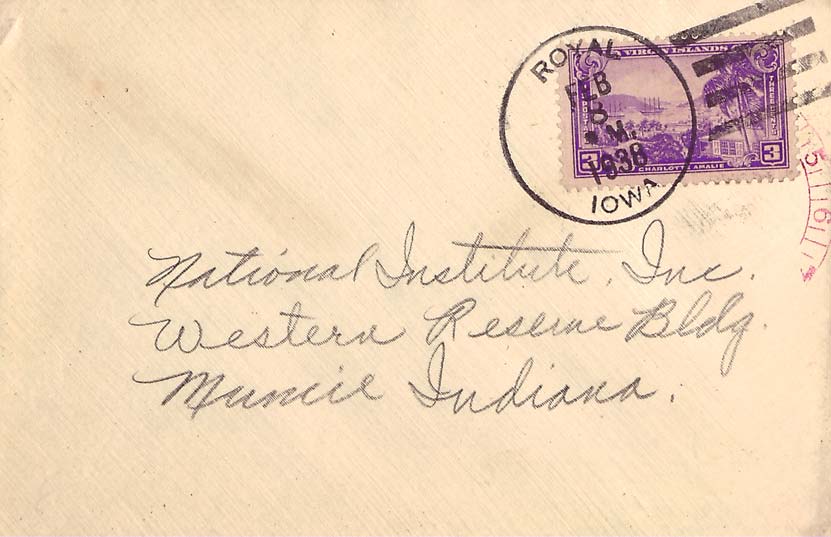 ROYAL
FEB
8
M.
1938
IOWA
VIRGIN ISLANDS
THREE CENTS
3 3
CHARLOTTE AMALIE
National Institute, Inc.
Western Reserve Bldg.
Muncie Indiana.